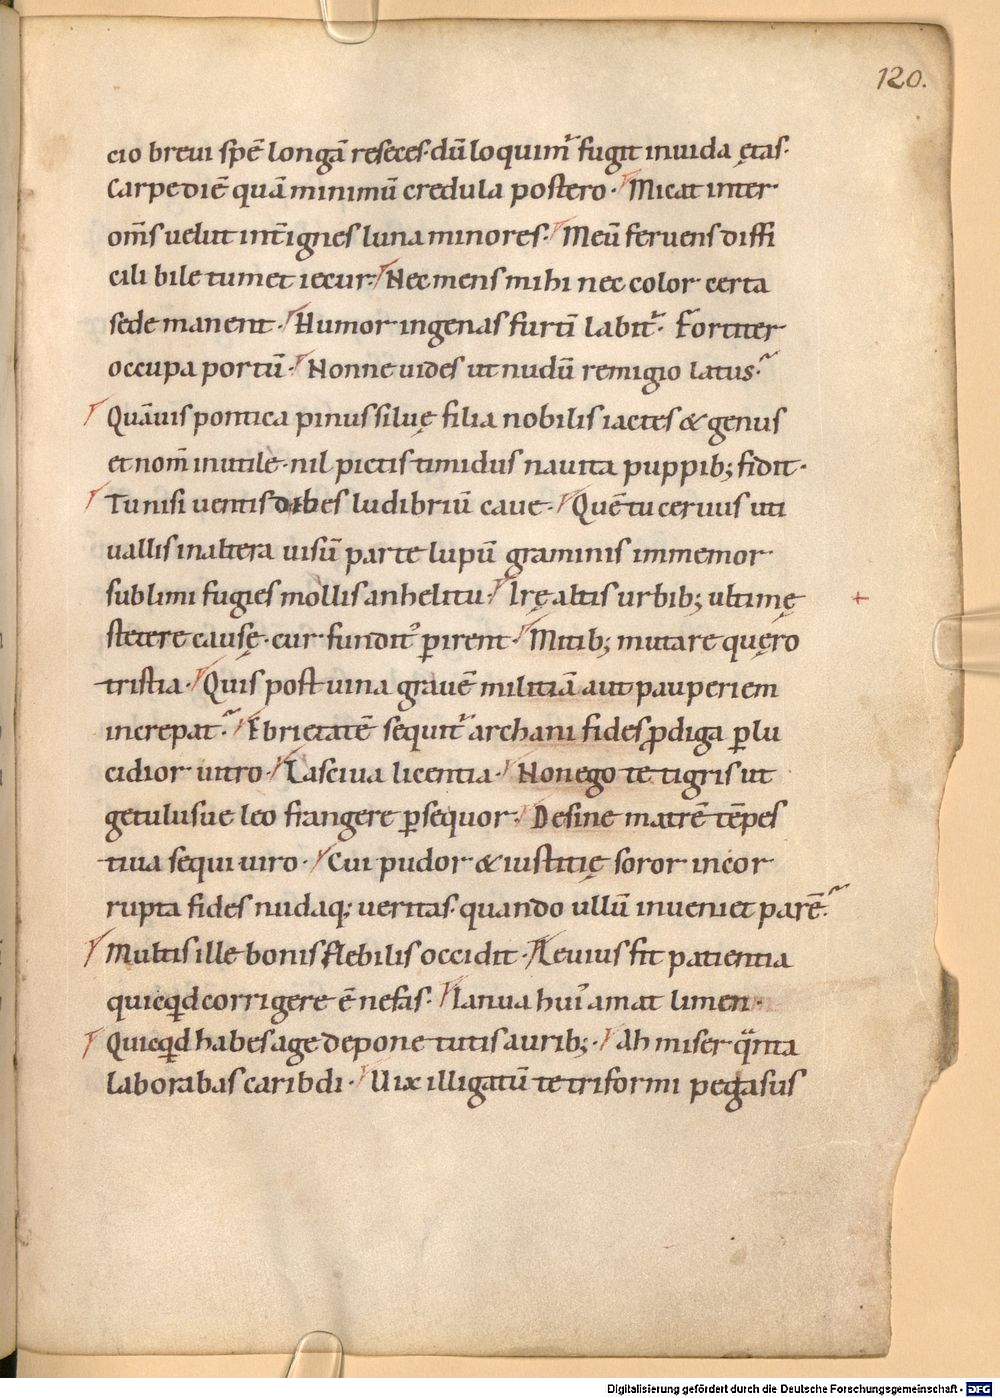 120.
cio breui spē longā reseces· dū loquim᷑ fugit inuida ętas·
Carpe diē quā minimū credula postero· Micat inter
om̄s uelut int̄ ignes luna minores· Meū feruens diffi
cili bile tumet iecur· Nec mens mihi nec color certa
sede manent· Humor in genas furtī labit᷑· Fortiter
occupa portū· Nonne uides ut nudū remigio latus·
Quāuis pontica pinus siluę filia nobilis iactes & genus
et nom̄ inutile· nil pictis timidus nauita puppib; fidit·
Tu nisi uentis debes ludibriū caue· Quē tu ceruus uti
uallis in altera uisū parte lupū graminis immemor
sublimi fugies mollis anhelitu· Irę altis urbib; ultimę
stetere causę· cur fundit᷑ ꝑirent· Mitib; mutare quęro
tristia· Quis post uina grauē militiā aut pauperiem
increpat· Ebrietatē sequit᷑ archani fides ꝓdiga ꝑlu
cidior uitro· Lasciua licentia· Non ego te tigris ut
getulusue leo frangere ꝑsequor· Desine matrē tēpes
tiua sequi uiro· Cui pudor & iustitię soror incor
rupta fides nudaq; ueritas· quando ullū inueniet parē·
Multis ille bonis flebilis occidit· Leuius fit patientia
quicq̄d corrigere ē nefas· Ianua hui᷒ amat limen·
Quicq̄d habes age depone tutis aurib;· Ah miser q̄nta
laborabas caribdi· Uix illigatū te triformi pegasus
+
Digitalisierung gefördert durch die Deutsche Forschungsgemeinschaft - DFG